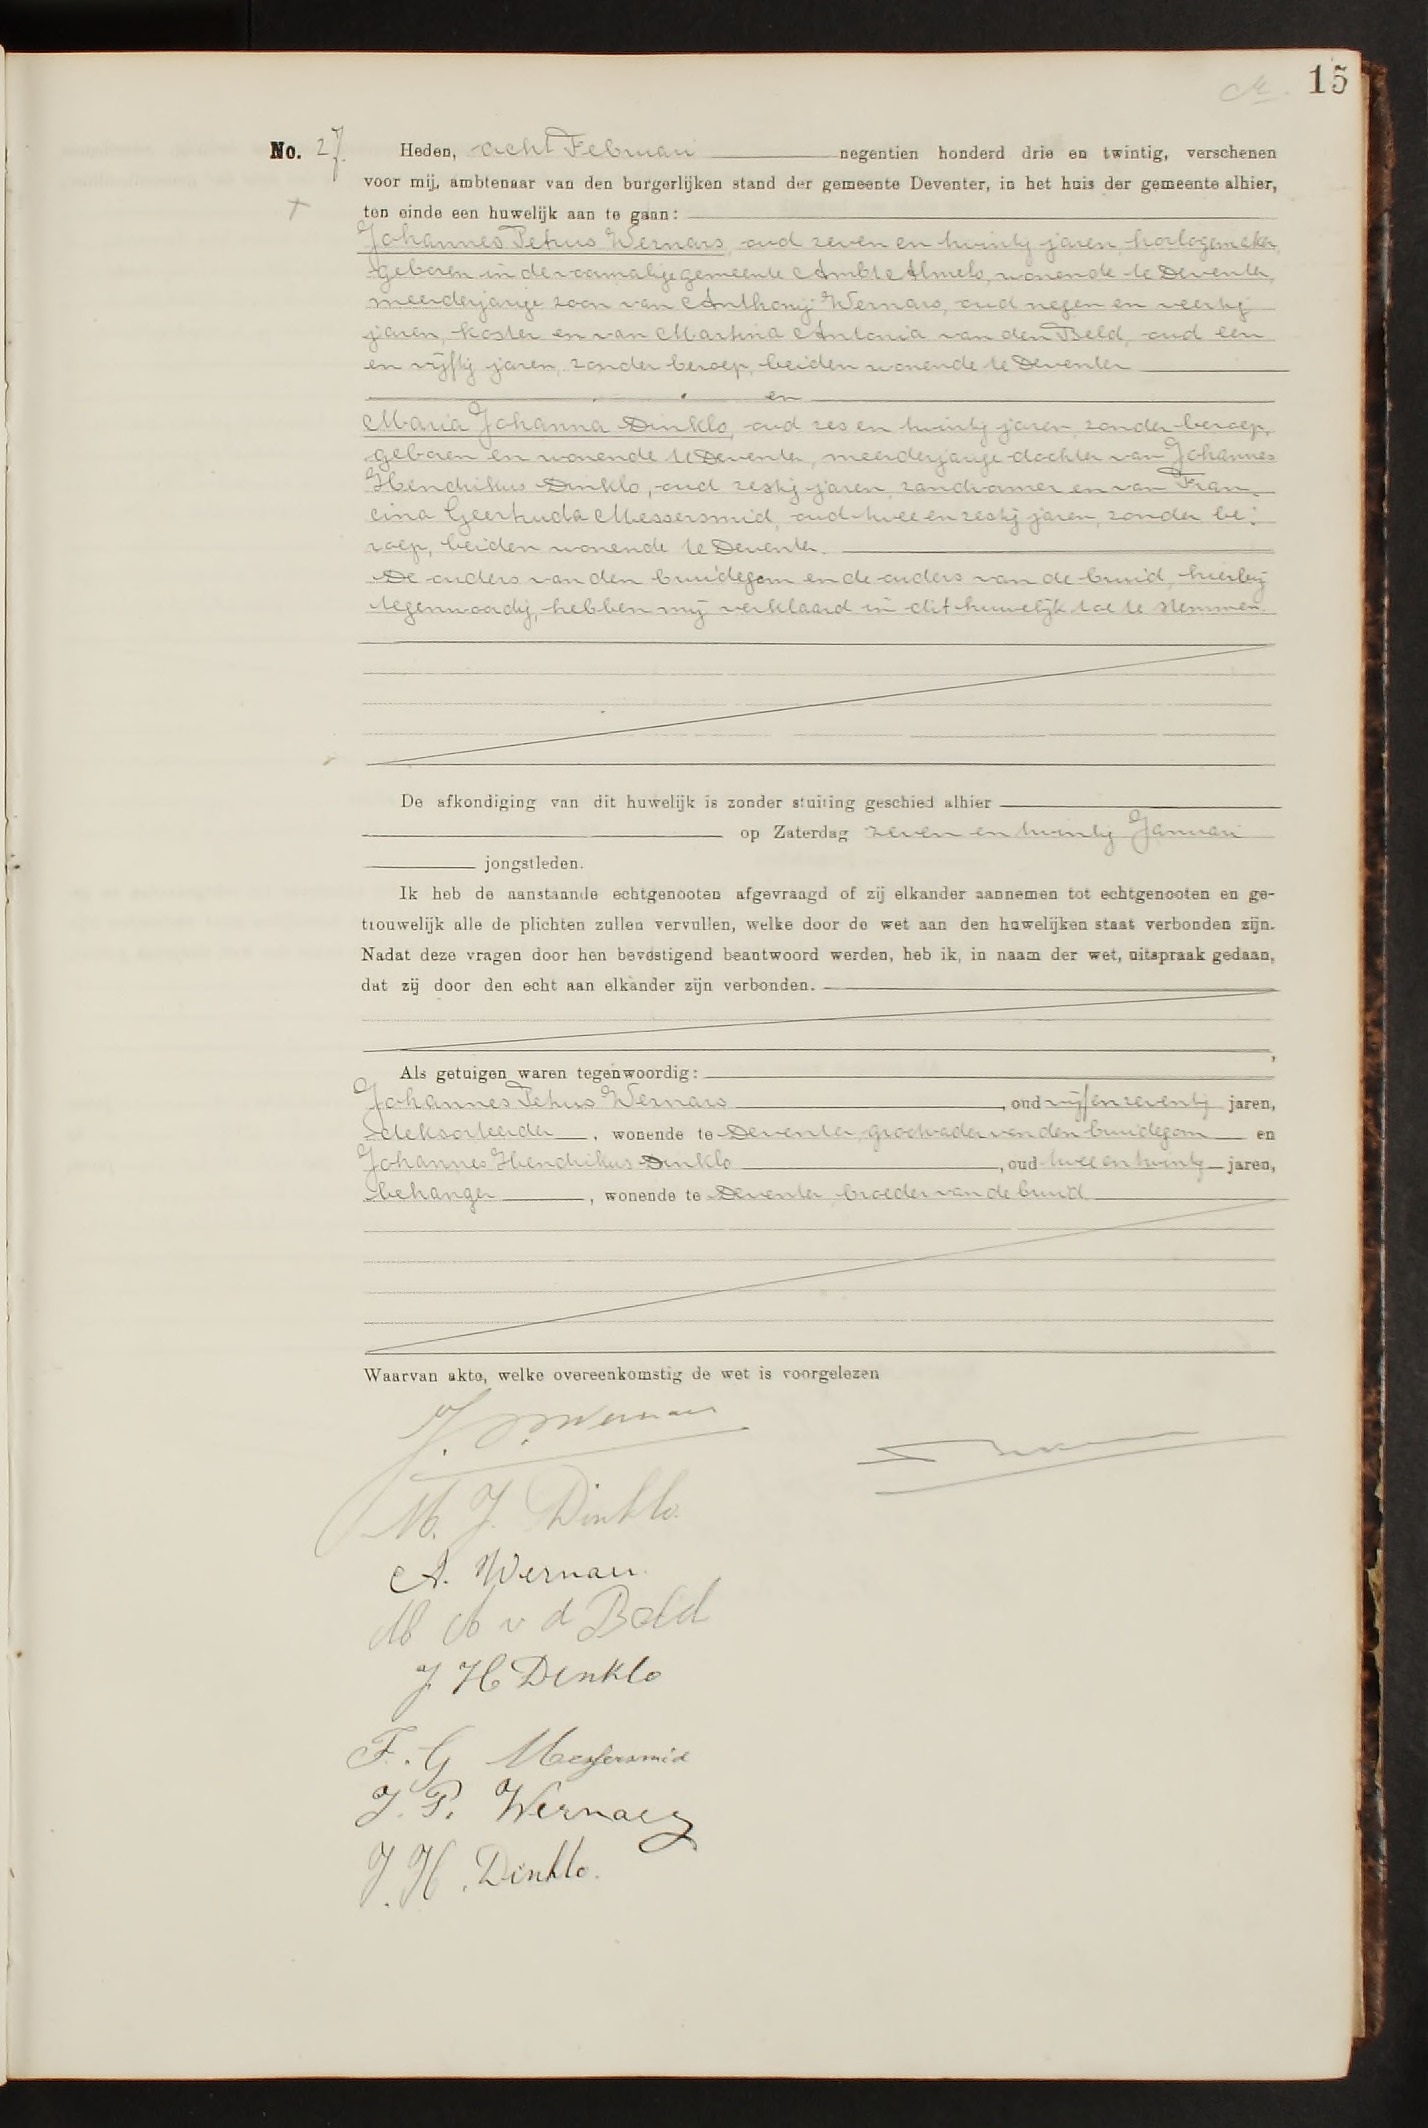 15
No. 27. Heden, acht Februari negentien honderd drie en twintig, verschenen
voor mij, ambtenaar van den burgerlijken stand der gemeente Deventer, in het huis der gemeente alhier,
ten einde een huwelijk aan te gaan:
Johannes Petrus Wernars, oud zeven en twintig jaren, horlogemaker,
geboren in de voormalige gemeente Ambt Almelo, wonende te Deventer,
meerderjarige zoon van Anthonij Wernars, oud negen en veertig
jaren, koster en van Martina Antonia van den Beld, oud een
en vijftig jaren, zonder beroep, beiden wonende te Deventer
en
Maria Johanna Dinklo, oud zes en twintig jaren, zonder beroep,
geboren en wonende te Deventer, meerderjarige dochter van Johannes
Hendrikus Dinklo, oud zestig jaren, zandvormer en van Fran-
cina Geertruda Messersmid, oud twee en zestig jaren, zonder be-
roep, beiden wonende te Deventer.
De ouders van den bruidegom en de ouders van de bruid, hierbij
tegenwoordig, hebben mij verklaard in dit huwelijk toe te stemmen.
De afkondiging van dit huwelijk is zonder stuiting geschied alhier
op Zaterdag zeven en twintig Januari
jongstleden.
Ik heb de aanstaande echtgenooten afgevraagd of zij elkander aannemen tot echtgenooten en ge-
trouwelijk alle de plichten zullen vervullen, welke door de wet aan den huwelijken staat verbonden zijn.
Nadat deze vragen door hen bevestigend beantwoord werden, heb ik, in naam der wet, uitspraak gedaan,
dat zij door den echt aan elkander zijn verbonden.
Als getuigen waren tegenwoordig:
Johannes Petrus Wernars, oud vijf en zeventig jaren,
, wonende te Deventer, grootvader van den bruidegom en
Johannes Hendrikus Dinklo, oud twee en twintig jaren,
behanger, wonende te Deventer, broeder van de bruid.
Waarvan akte, welke overeenkomstig de wet is voorgelezen
J. P. Wernars
M. J. Dinklo.
A. Wernars.
M A v d Beld
J H Dinklo
F. G Messersmid
J. P. Wernars
J. H. Dinklo.